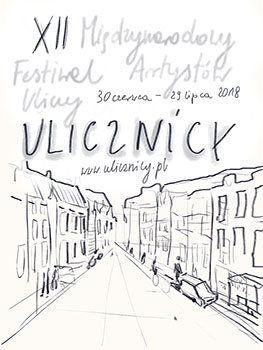 XII Międzynarodowy
Festiwal Artystów
Ulicy 30 czerwca – 29 lipca 2018
ULICZNICY
www.ulicznicy.pl